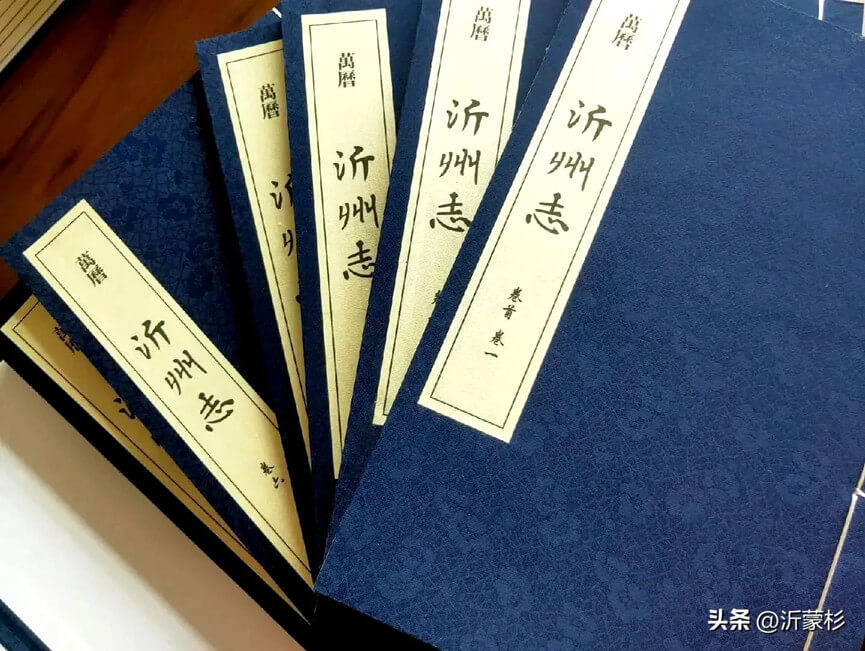 萬曆
沂州志
卷首 卷一
萬曆
沂州志
萬曆
沂州志
萬曆
沂州
萬曆
沂州志
卷六
萬曆
头条 @沂蒙杉